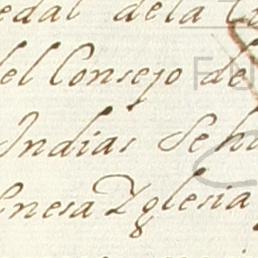 edal dela
del Consejo de
Indias Se h
enesa Yglesia